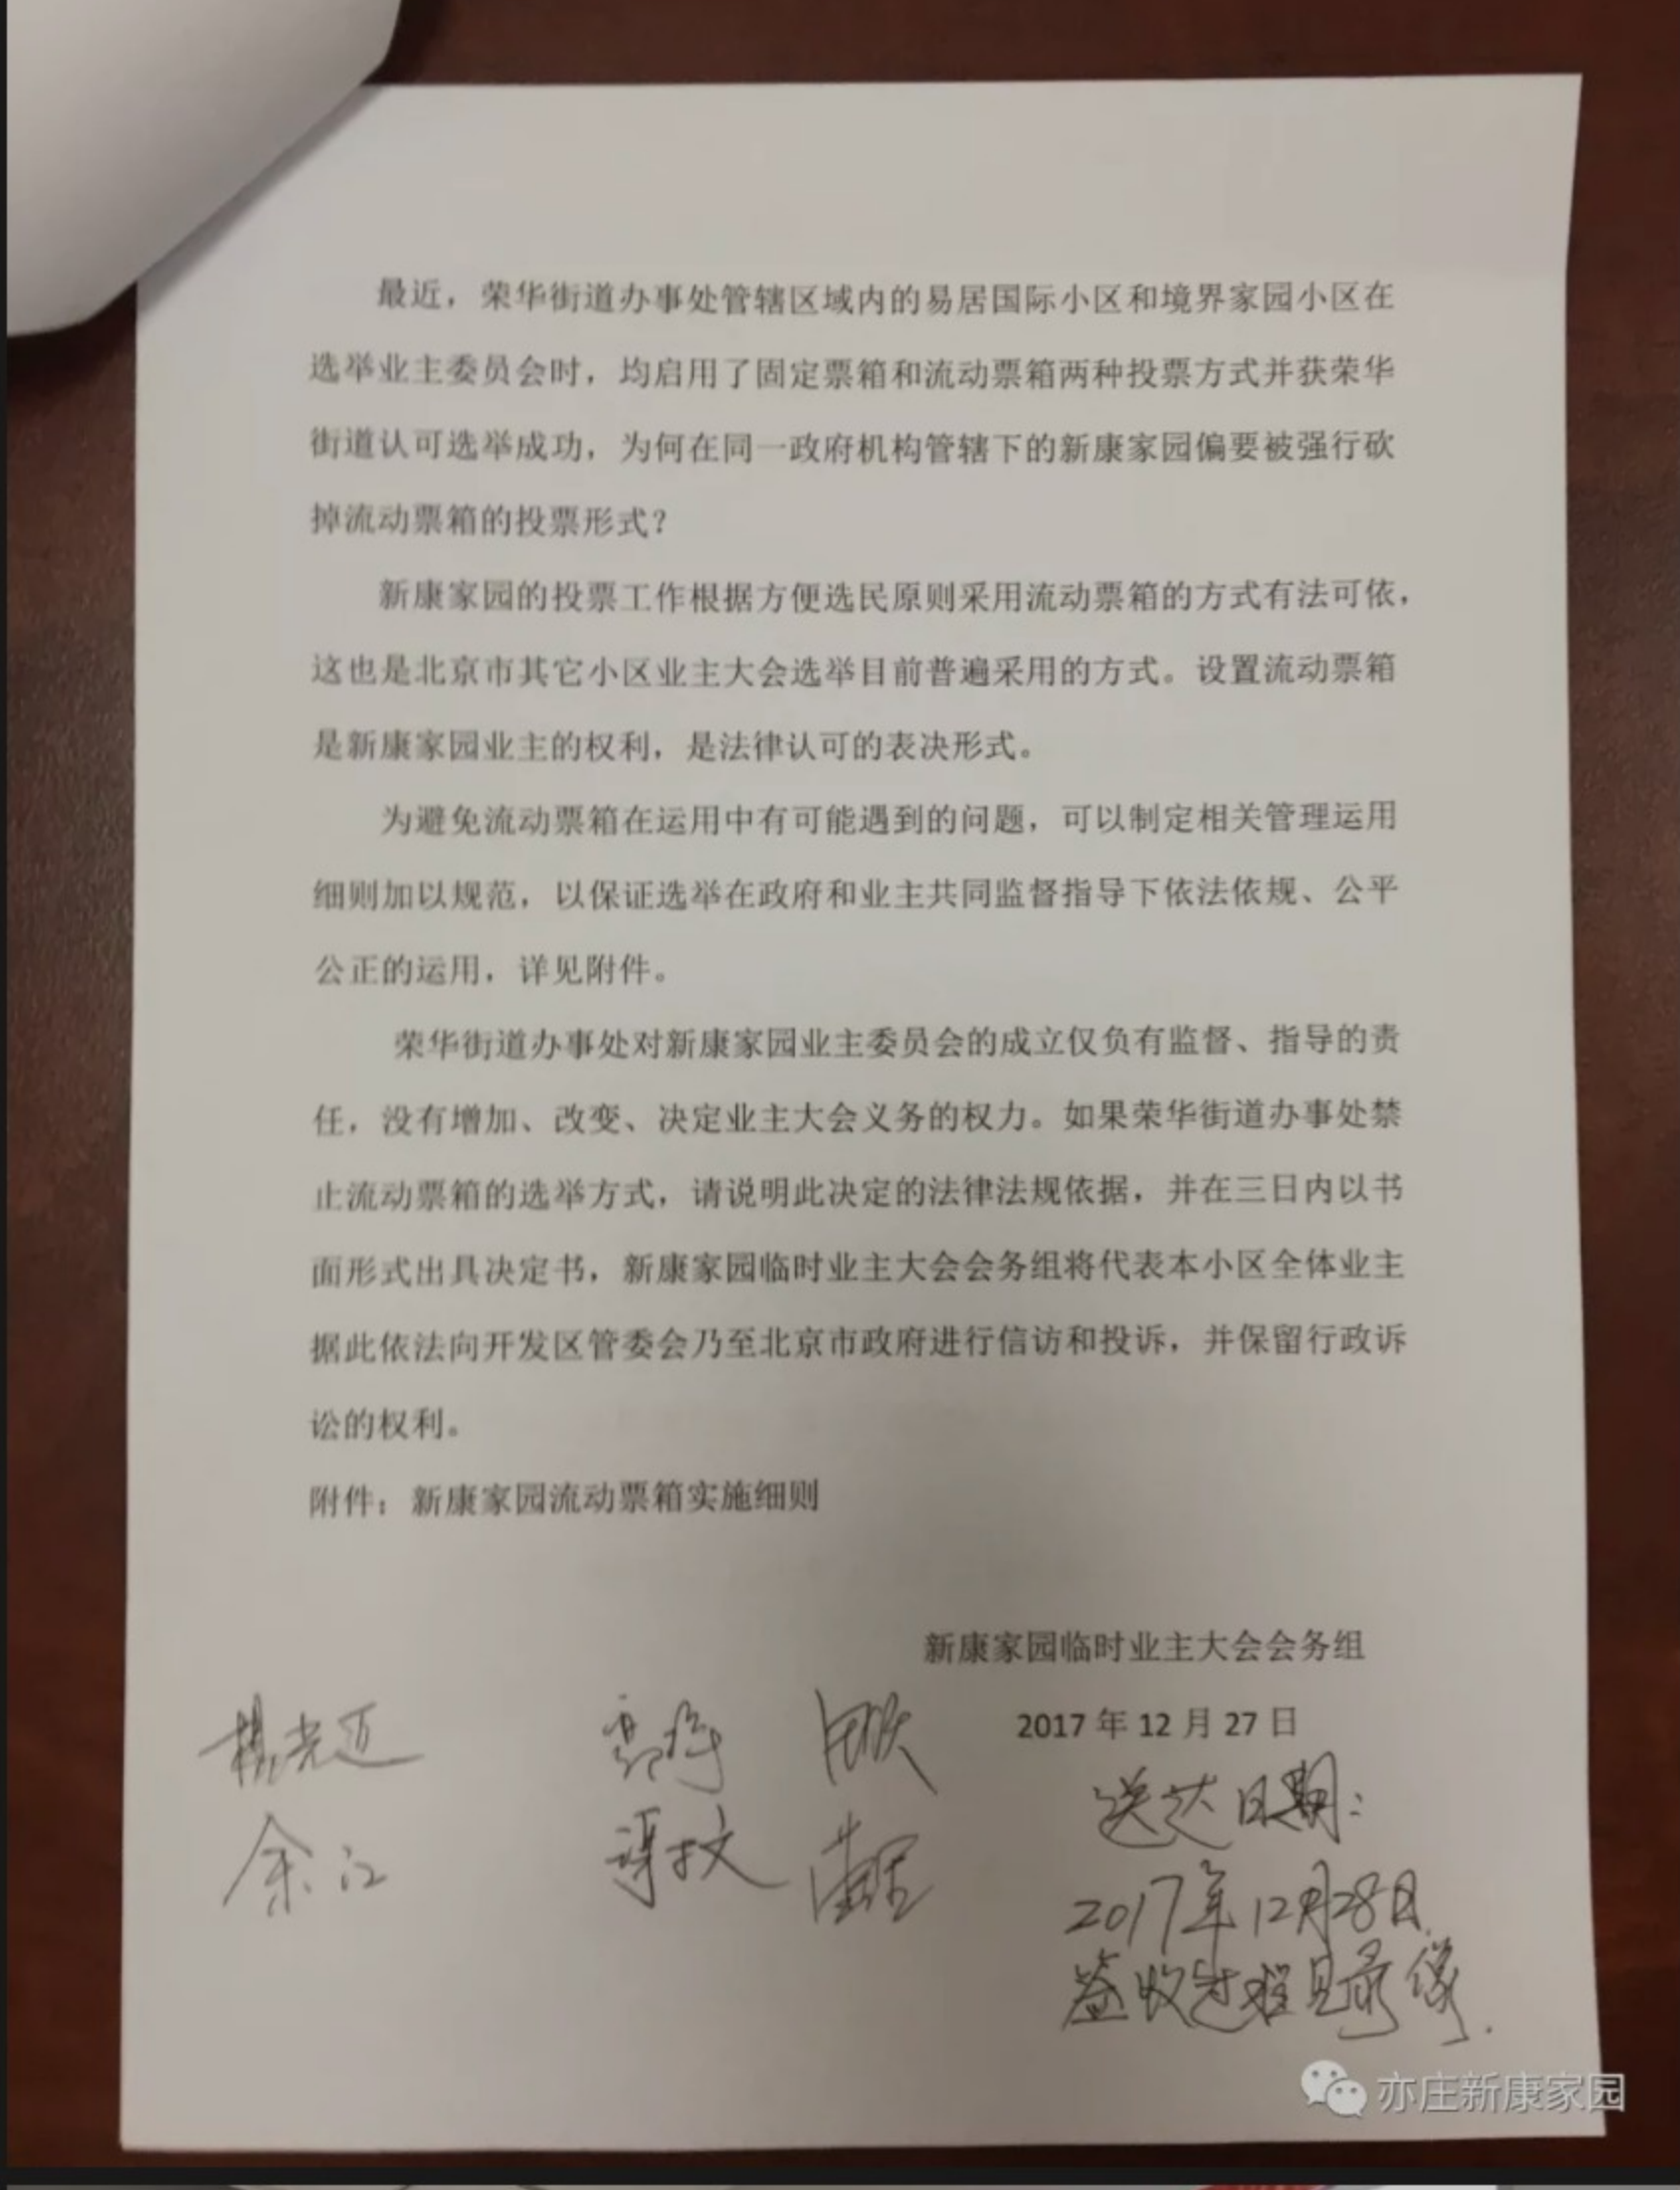 最近，荣华街道办事处管辖区域内的易居国际小区和境界家园小区在
选举业主委员会时，均启用了固定票箱和流动票箱两种投票方式并获荣华
街道认可选举成功，为何在同一政府机构管辖下的新康家园偏要被强行砍
掉流动票箱的投票形式？
新康家园的投票工作根据方便选民原则采用流动票箱的方式有法可依，
这也是北京市其它小区业主大会选举目前普遍采用的方式。设置流动票箱
是新康家园业主的权利，是法律认可的表决形式。
为避免流动票箱在运用中有可能遇到的问题，可以制定相关管理运用
细则加以规范，以保证选举在政府和业主共同监督指导下依法依规、公平
公正的运用，详见附件。
荣华街道办事处对新康家园业主委员会的成立仅负有监督、指导的责
任，没有增加、改变、决定业主大会义务的权力。如果荣华街道办事处禁
止流动票箱的选举方式，请说明此决定的法律法规依据，并在三日内以书
面形式出具决定书，新康家园临时业主大会会务组将代表本小区全体业主
据此依法向开发区管委会乃至北京市政府进行信访和投诉，并保留行政诉
讼的权利。
附件：新康家园流动票箱实施细则
新康家园临时业主大会会务组
2017 年 12 月 27 日
余江
送达日期：
2017年12月28日
签收过程见录像.
亦庄新康家园